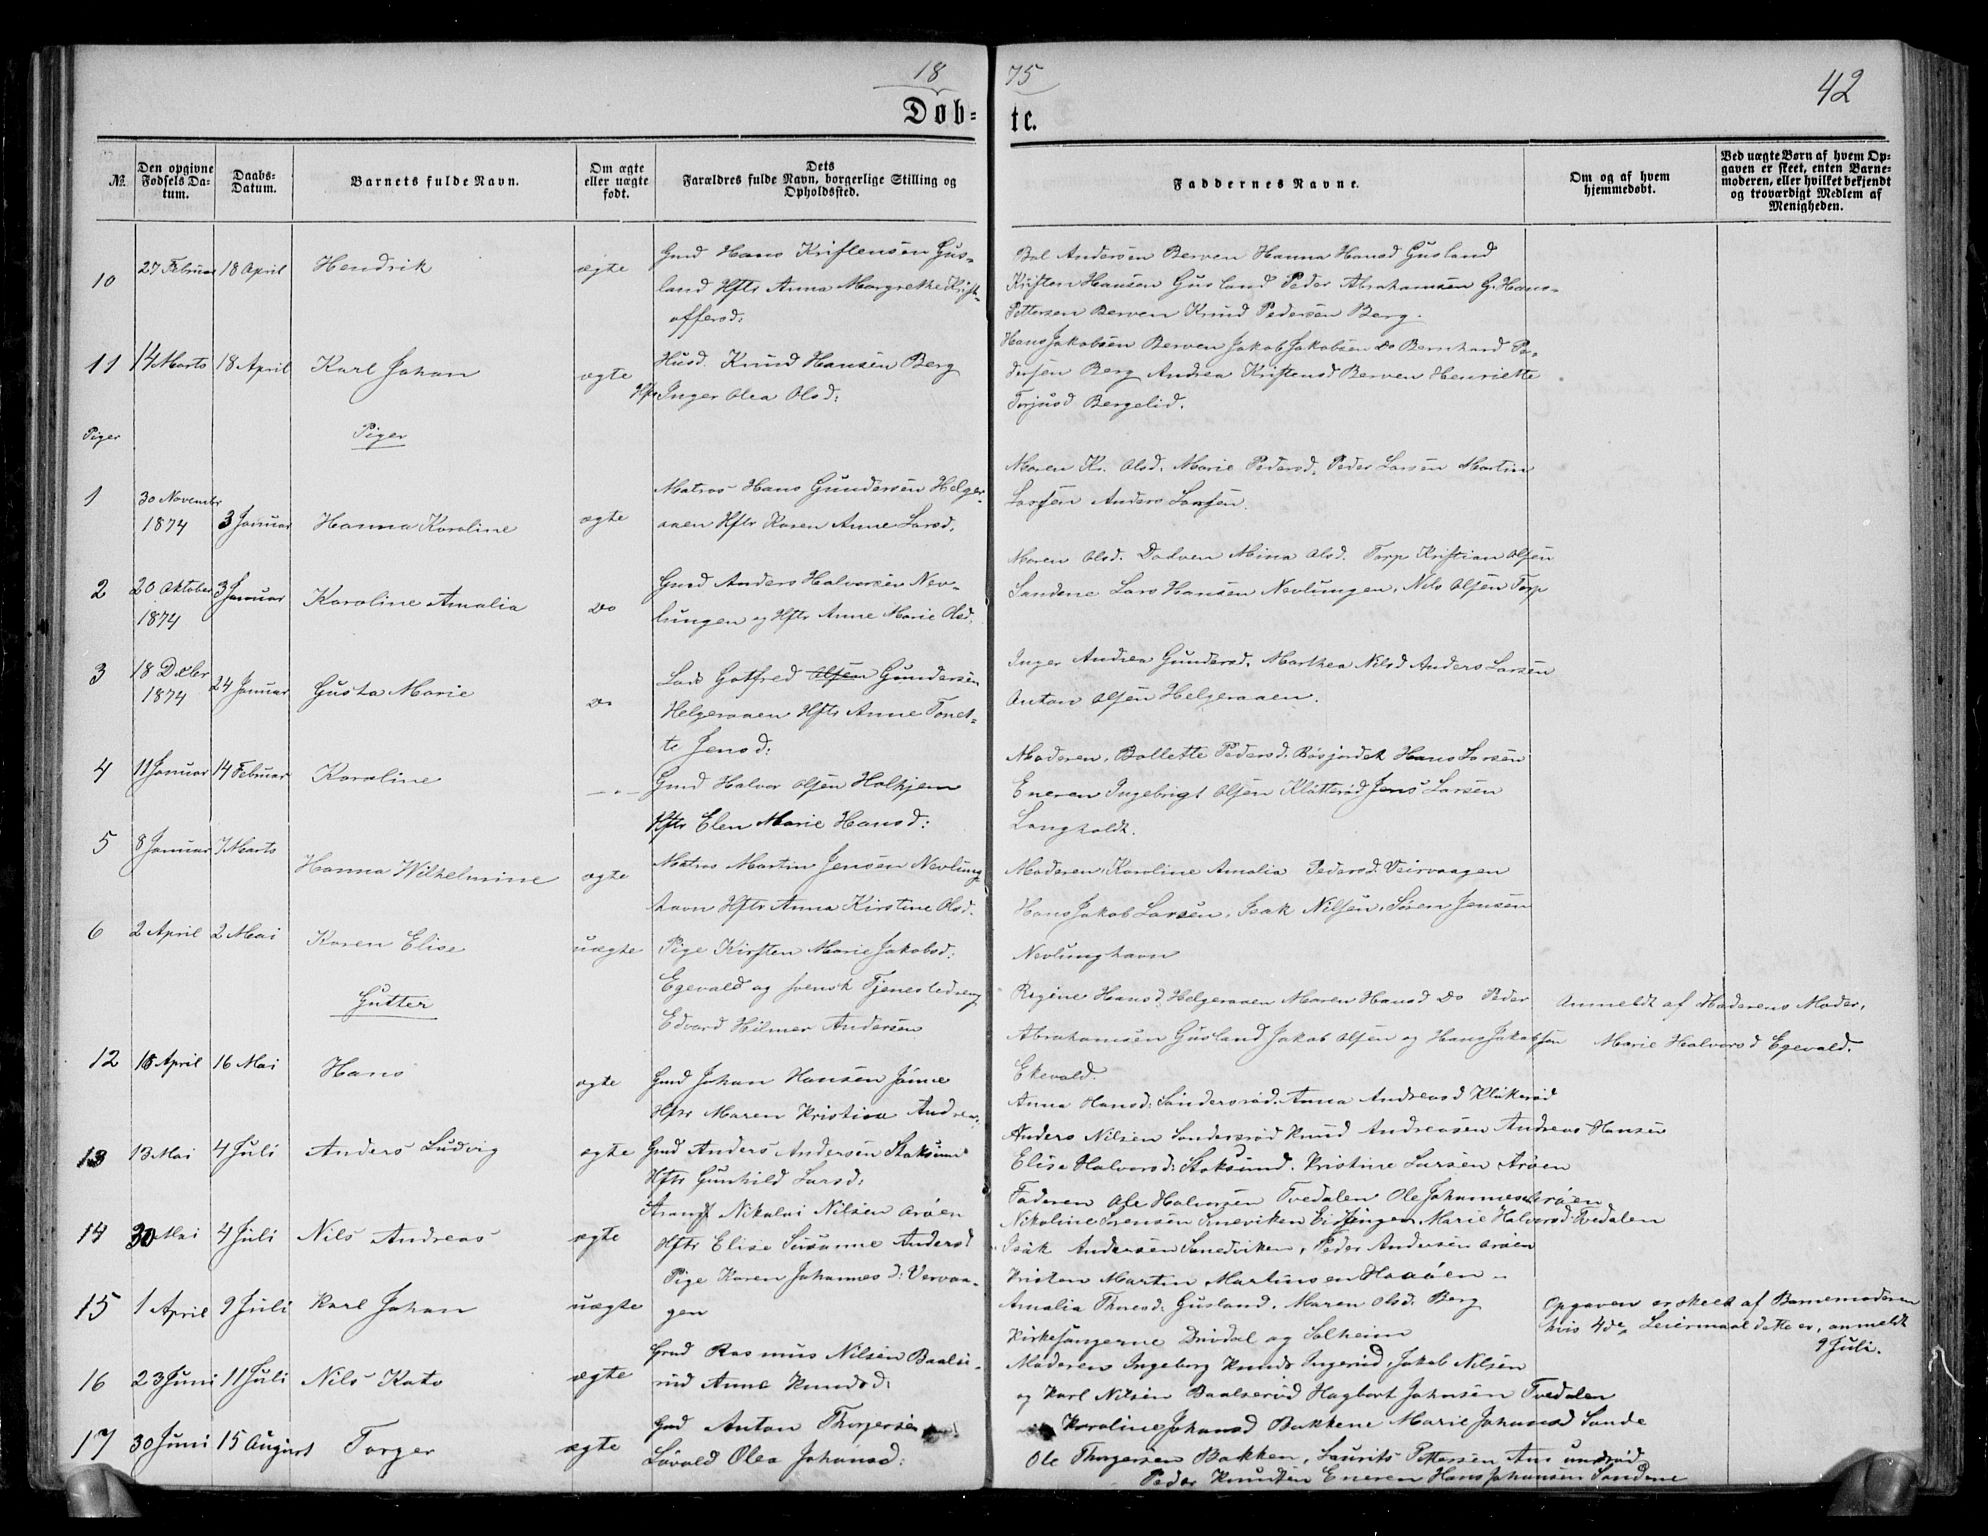 18
75
42
Døb-
te.
№
Den opgivne Fødsels Datum.
Daabs-Datum.
Barnets fulde Navn.
Om ægte eller uægte født.
Dets Forældres fulde Navn, borgerlige Stilling og Opholdssted.
Faddernes Navne.
Om og af hvem hjemmedøbt.
Ved uægte Børn af hvem Opgaven er skeet, enten Barnemoderen, eller hvilket bekjendt og troværdigt Medlem af Menigheden.
10 27 Februar 18 April Hendrik ægte
Gmd Hans Kristensen Gus-
land Hftr Anna Margrethe Krist-
offersd:
Andersen Berven Hanna Hansd Gusland
Kristen Hansen Gusland Peder Abrahamsen G. Hans
Pettersen Berven Knud Pedersen Berg.
11 14 Marts 18 April Karl Johan ægte
Husd. Knud Hansen Berg
Hftr Inger Olea Olsd:
Hans Jakobsen Berven Jakob Jakobsen Do Bernhard Pe-
dersen Berg Andrea Kristensd Berven Henriette
Torjusd Bergelid.
Piger
Piger
1 30 November 1874 3 Januar Hanna Karoline ægte
Matros Hans Gundersen Helger-
aaen Hftr Karen Anne Larsd.
Maren Kr. Olsd. Marie Pedersd. Peder Larsen Martin
Larsen Anders Larsen.
2 20 Oktober 1874 3 Januar Karoline Amalia Do
Gmd Anders Halvorsen Nev-
lungen og Hftr Anne Marie Olsd.
Maren Olsd. Dodven Mina Olsd. Torp Kristian Olsen
Sandene Lars Hansen Nevlungen, Nils Olsen Torp
3 18 Decbr 1874 24 Januar Gusta Marie Do
Lods Gotfred Olsen Gundersen
Helgeraaen Hftr Anne Tonet-
te Jensd:
Inger Andrea Gundersd. Marthea Nilsd Anders Larsen
Anton Olsen Helgeraaen.
4 11 Januar 14 Februar Karoline
Gmd Halvor Olsen Holkjem
Hftr Elen Marie Hansd:
Moderen, Bollette Pedersd. Røsjordet Hans Larsen
Eneren Ingebrigt Olsen Klåtterød Jens Larsen
Langholdt.
5 8 Januar 7 Marts Hanna Wilhelmine ægte
Matros Martin Jensen Nevlung-
havn Hftr Anna Kirstine Olsd.
Moderen, Karoline Amalia Pedersd. Veirvaagen
Hans Jakob Larsen, Isak Nilsen, Søren Jensen
Nevlunghavn
6 2 April 2 Mai Karen Elise uægte
Pige Kirsten Marie Jakobsd:
Egevald og svensk Tjenestedreng
Edvard Hilmer Andersen
Regine Hansd Helgeraaen Maren Hansd Do Peder
Abrahamsen Gusland Jakob Olsen og Hans Jakobsen
Ekevald.
Anmeldt af Moderens Moder,
Marie Halvorsd Egevald.
Gutter
12 15 April 16 Mai Hans ægte
Gmd Johan Hansen Jønne
Hftr Maren Kristine Andrea.
Anna Hansd: Søndersrød. Anna Andreasd Klåkerød
Anders Nilsen Søndersrød Knud Andreasen Andreas Hansen
13 13 Mai 4 Juli Anders Ludvig ægte
Gmd Anders Andersen Stoksund
Hftr Gunhild Larsd:
Elise Halvorsd: Stoksund. Kristine Larsen Arøen
Faderen Ole Halvorsen Tvedalen Ole Johannesen Arøen
14 30 Mai 4 Juli Nils Andreas ægte
Strandf Nikolai Nilsen Arøen
Hftr Elise Susanne Andersd
Nikoline Sørensen Sneviken Marie Halvorsd: Tvedalen
Isak Andersen Sanedviken, Peder Andersen Arøen
Kristen Martin Martinsen Haaøen
15 1 April 9 Juli Karl Johan uægte
Pige Karen Johannesd: Vervaa-
gen
Amalia Thoresd: Gusland. Maren Olsd. Berg
Kirkesangerne Drivdal og Solheim
Opgaven er skeet af Barnemoderen
hvis 4de, Leiermaal dette er, anmeldt
9 Juli.
16 23 Juni 11 Juli Nils Kato ægte
Gmd Rasmus Nilsen Baalse-
rud Anne Knudsd:
Moderen Ingeborg Knudsd Jakob Nilsen
og Karl Nilsen Baalserød Hagbart Johnsen Tvedalen
17 30 Juni 15 August Torger ægte
Gmd Anton Thorgersen
Løvald Olea Johansd:
Karoline Johansd Bakkene Marie Johansd Sande
Ole Thorgersen Bakken, Laurits Pettersen
Peder Knudsen Eneren Hans Johansen Sandene